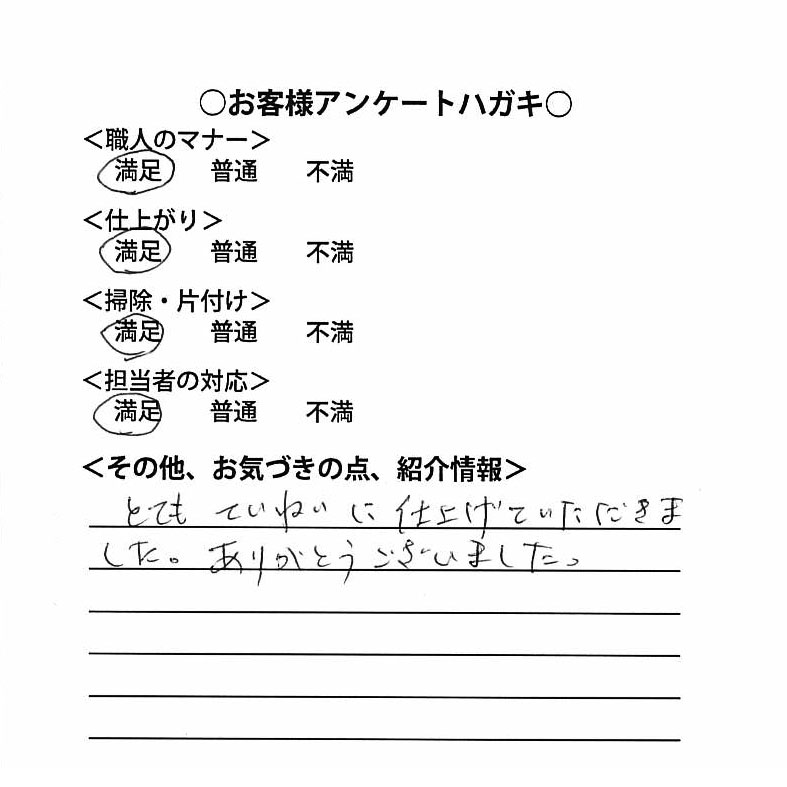 ○お客様アンケートハガキ○
＜職人のマナー＞
満足 普通 不満
＜仕上がり＞
満足 普通 不満
＜掃除・片付け＞
満足 普通 不満
＜担当者の対応＞
満足 普通 不満
＜その他、お気づきの点、紹介情報＞
とても ていねい に 仕上げていただきま
した。ありがとうございました。